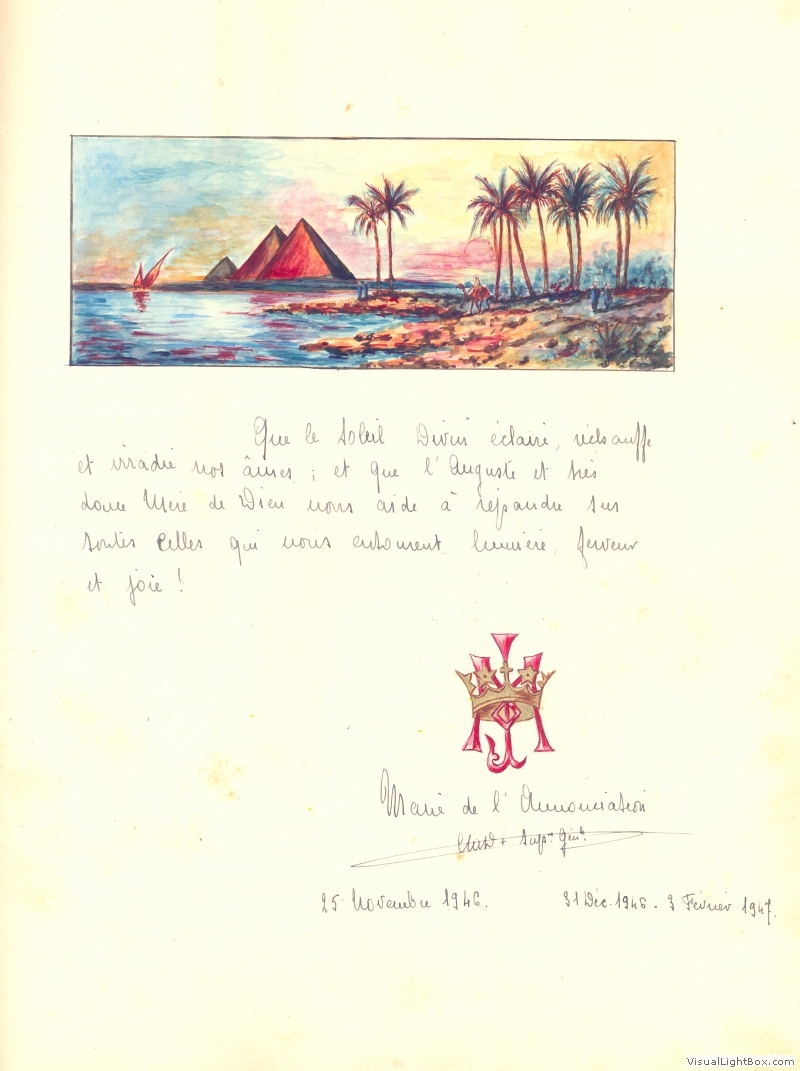 Que le Soleil Divin éclaire, réchauffe
et irradie nos âmes ; et que l'Auguste et très
douce Mère de Dieu nous aide à répandre sur
toutes Celles qui nous entourent lumière, ferveur
et joie !
Marie de l'Annonciation
Supre Génle
25 Novembre 1946.
31 Déc. 1946 - 3 Février 1947.
VisualLightBox.com